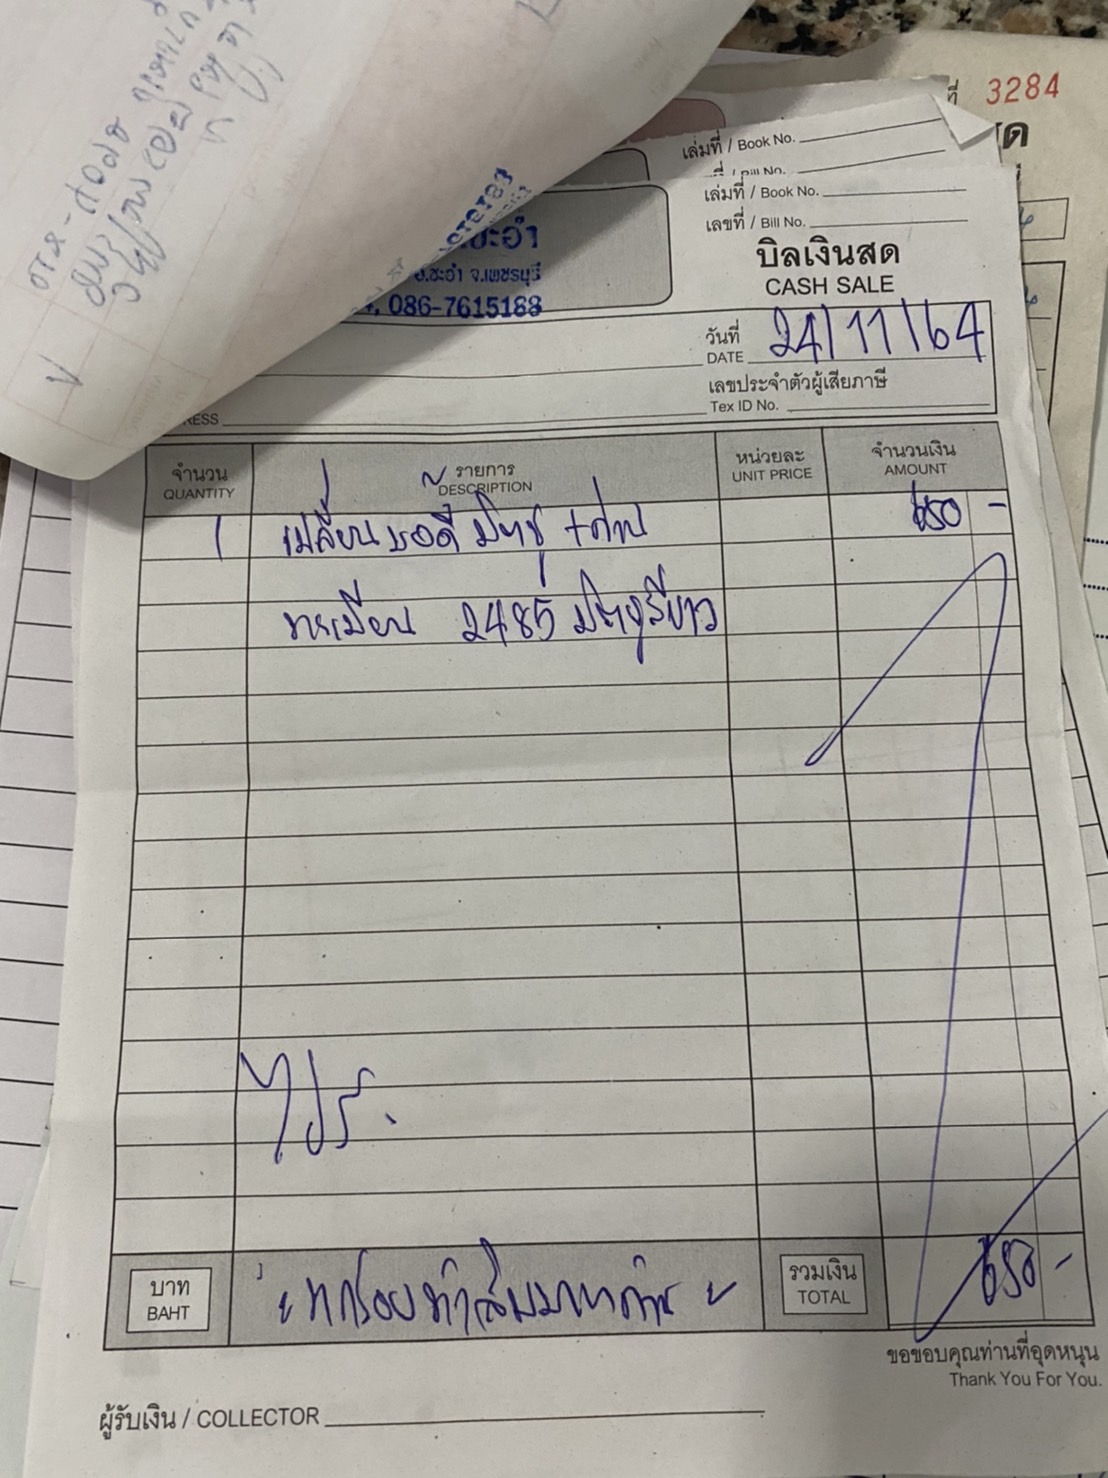 3284
เล่มที่ / Book No.
เล่มที่ / Book No.
เลขที่ / Bill No.
บิลเงินสด
CASH SALE
อ.ชะอำ จ.เพชรบุรี
086-7615188
วันที่
DATE 24/11/64
เลขประจำตัวผู้เสียภาษี
Tex ID No.
จำนวน รายการ หน่วยละ จำนวนเงิน
QUANTITY DESCRIPTION UNIT PRICE AMOUNT
1 เปลี่ยนบอดี้ มิตซู +ถ่าน 650 -
ทะเบียน 2485 มิตซูสีขาว
บาท รวมเงิน
BAHT หกร้อยห้าสิบบาทถ้วน TOTAL 650 -
ขอขอบคุณท่านที่อุดหนุน
Thank You For You.
ผู้รับเงิน / COLLECTOR